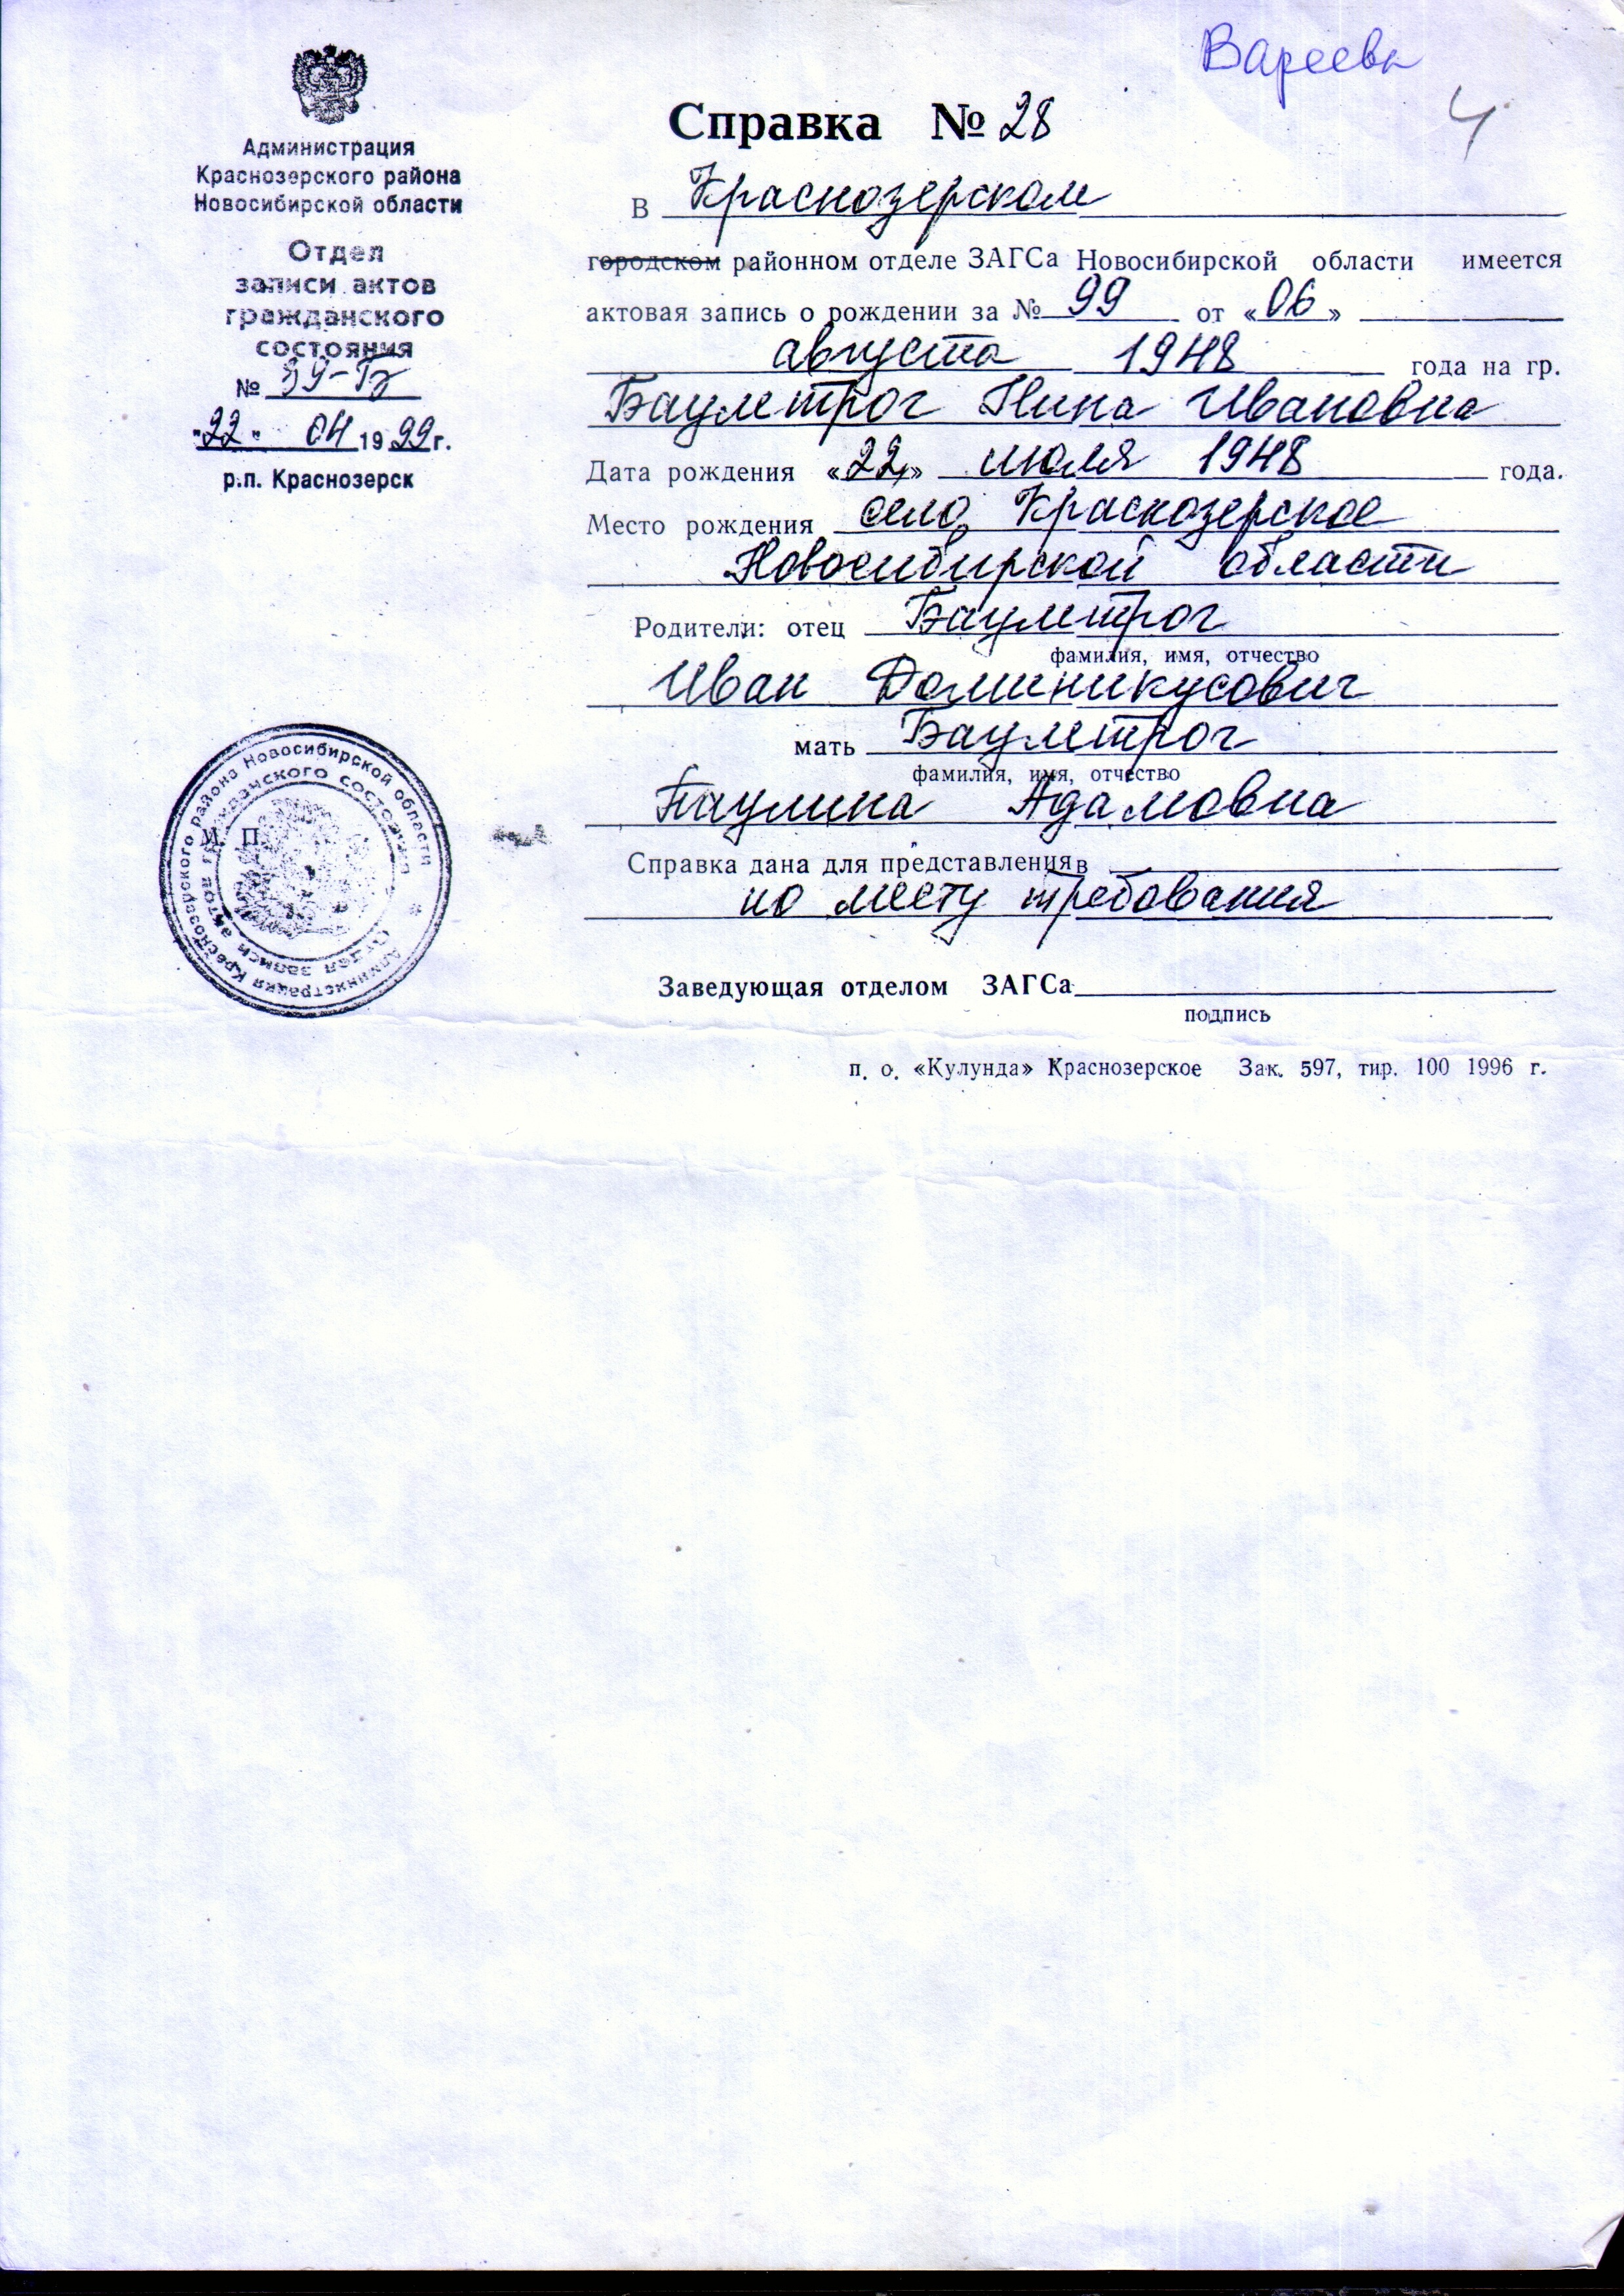 Вареевы
4
Администрация
Краснозерского района
Новосибирской области
Отдел
записи актов
гражданского
состояния
№ 39-Б
"22" 04 1999г.
р.п. Краснозерск
Справка № 28
В Краснозерском
городском районном отделе ЗАГСа Новосибирской области имеется
актовая запись о рождении за № 99 от «06»
августа 1948 года на гр.
Баумтрог Нина Ивановна
Дата рождения «22» июля 1948 года.
Место рождения село Краснозерское
Новосибирской области
Родители: отец Баумтрог
фамилия, имя, отчество
Иван Доминикусович
мать Баумтрог
фамилия, имя, отчество
Паулина Адамовна
Справка дана для представления в
по месту требования
Заведующая отделом ЗАГСа
подпись
п. о. «Кулунда» Краснозерское Зак. 597, тир. 100 1996 г.
М. П.
Администрация Краснозерского района Новосибирской области
Отдел записи актов гражданского состояния